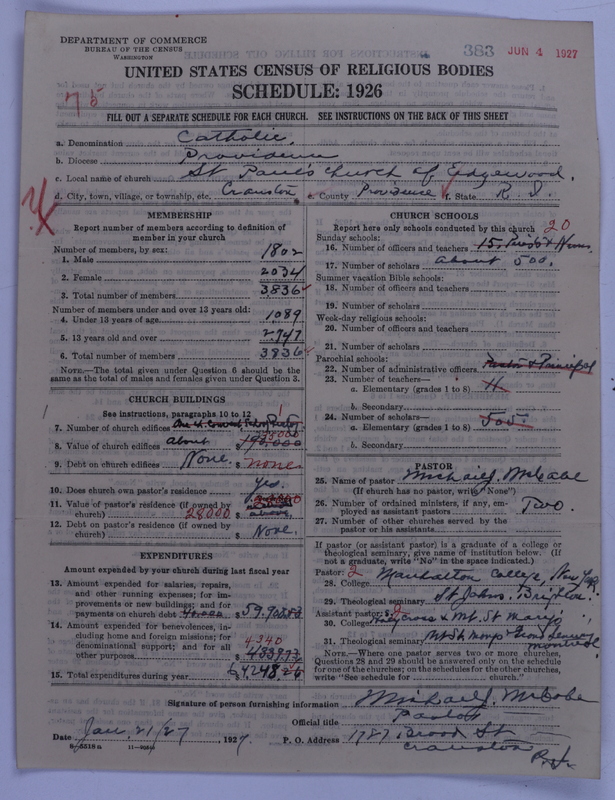 DEPARTMENT OF COMMERCE
BUREAU OF THE CENSUS
WASHINGTON
383 JUN 4 1927
UNITED STATES CENSUS OF RELIGIOUS BODIES
SCHEDULE: 1926
75
FILL OUT A SEPARATE SCHEDULE FOR EACH CHURCH. SEE INSTRUCTIONS ON THE BACK OF THIS SHEET
a. Denomination Catholic.
b. Diocese Providence
c. Local name of church St Paul's Church of Edgewood.
d. City, town, village, or township, etc. Cranston e. County Providence f. State R. I.
MEMBERSHIP
Report number of members according to definition of
member in your church
Number of members, by sex:
1. Male 1802
2. Female 2034
3. Total number of members 3836
Number of members under and over 13 years old:
4. Under 13 years of age 1089
5. 13 years old and over 2747
6. Total number of members 3836
NOTE.—The total given under Question 6 should be
same as the total of males and females given under Question 3.
CHURCH BUILDINGS
See instructions, paragraphs 10 to 12
7. Number of church edifices 1
8. Value of church edifices about $
9. Debt on church edifices None $ none
10. Does church own pastor's residence Yes.
11. Value of pastor's residence (if owned by
church) 28000 $
12. Debt on pastor's residence (if owned by
church) $ None.
EXPENDITURES
Amount expended by your church during last fiscal year
13. Amount expended for salaries, repairs,
and other running expenses; for im-
provements or new buildings; and for
payments on church debt $ 59.908.83
14. Amount expended for benevolences, in-
cluding home and foreign missions; for
denominational support; and for all
other purposes 4340 $
15. Total expenditures during year $ 64248
CHURCH SCHOOLS
Report here only schools conducted by this church 20
Sunday schools:
16. Number of officers and teachers 15.
17. Number of scholars about 500.
Summer vacation Bible schools:
18. Number of officers and teachers
19. Number of scholars
Week-day religious schools:
20. Number of officers and teachers
21. Number of scholars
Parochial schools:
22. Number of administrative officers Pastor & Principal
23. Number of teachers—
a. Elementary (grades 1 to 8) 11
b. Secondary
24. Number of scholars—
a. Elementary (grades 1 to 8) 500.
b. Secondary
PASTOR
25. Name of pastor Michael J. McCabe
(If church has no pastor, write "None")
26. Number of ordained ministers, if any, em-
ployed as assistant pastors Two.
27. Number of other churches served by the
pastor or his assistants
If pastor (or assistant pastor) is a graduate of a college or
theological seminary, give name of institution below. (If
not a graduate, write "No" in the space indicated.)
Pastor: 2
28. College Manhattan College, New York
29. Theological seminary St Johns, Brighton.
Assistant pastor: 2
30. College Holy Cross & Mt. St Marys
31. Theological seminary Montreal
NOTE.—Where one pastor serves two or more churches,
Questions 28 and 29 should be answered only on the schedule
for one of the churches; on the schedules for the other churches,
write "See schedule for church."
Signature of person furnishing information Michael J. McCabe
Official title Pastor
Date Jan. 21/27, 1927. P. O. Address 1787 Broad St
Cranston R. I.
8—5518 a 11—